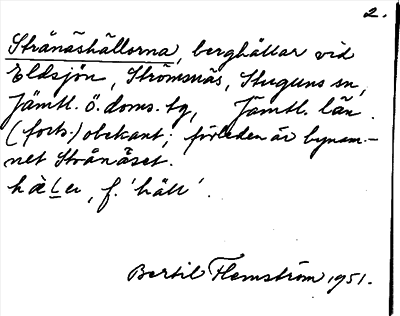 2.
Strånäshällorna, berghällar vid
Eldsjön, Strömsnäs, Stuguns sn,
Jämtl. ö. doms. tg, Jämtl. län.
(forts.) obekant; förleden är bynam-
net Strånäset.
hàLer, f. 'häll'.
Bertil Flemström 1951.